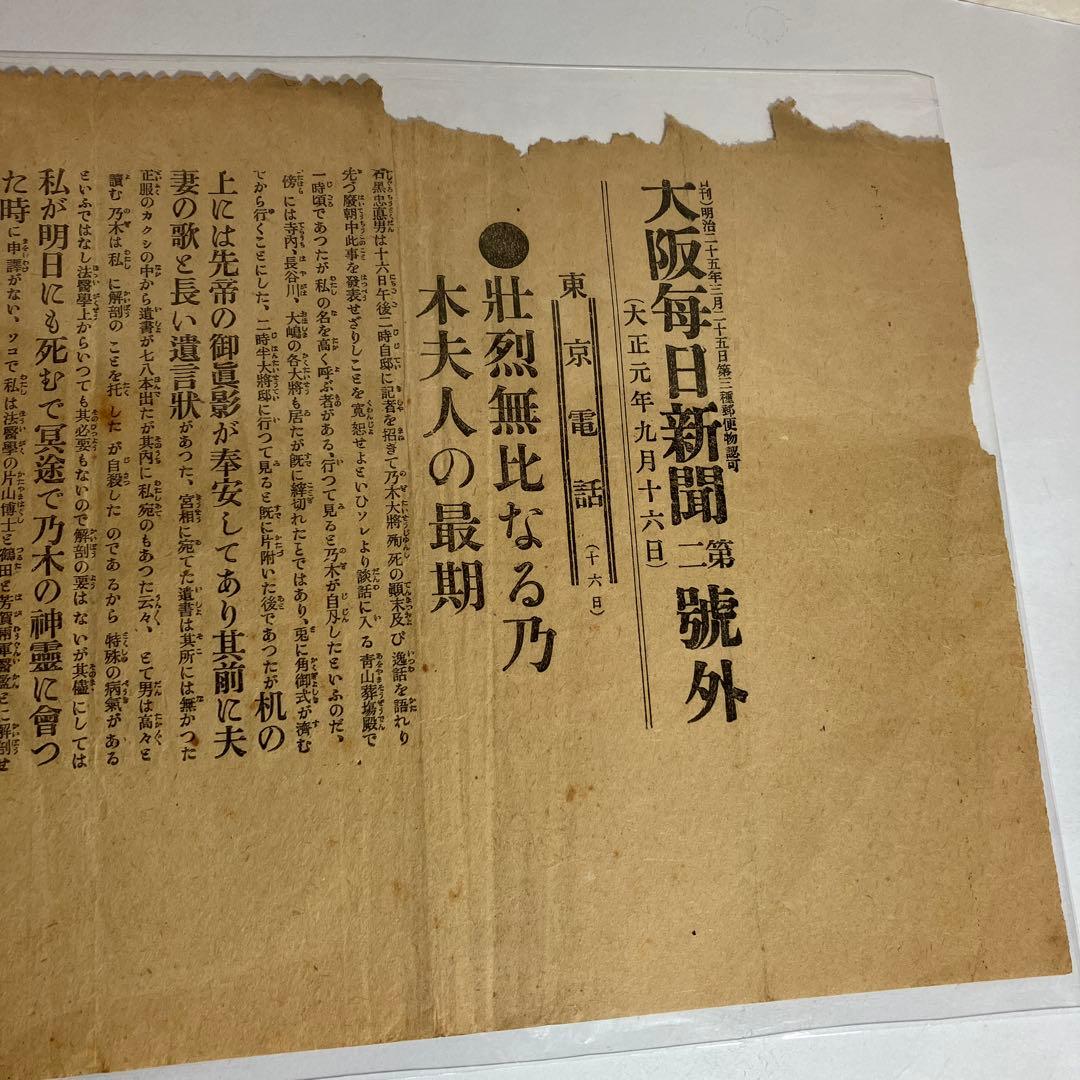 日刊)明治二十五年三月二十五日第三種郵便物認可
大阪毎日新聞第二號外
(大正元年九月十六日)
東京電話(十六日)
●壯烈無比なる乃
木夫人の最期
石黑忠悳男は十六日午後二時自邸に記者を招きて乃木大將殉死の顚末及び逸話を語れり
先づ廢朝中此事を發表せざりしことを寬恕せよといひソレより談話に入る靑山葬場殿で
一時頃であつたが私の名を高く呼ぶ者がある、行つて見ると乃木が自刄したといふのだ、
傍には寺內、長谷川、大嶋の各大將も居たが既に絳切れたとではあり、兎に角御式が濟む
てから行くことにした、二時半大將邸に行つて見ると既に片附いた後であつたが机の
上には先帝の御眞影が奉安してあり其前に夫
妻の歌と長い遺言狀があつた、宮相に宛てた遺書は其所には無かつた
正服のカクシの中から遺書が七八本出たが其內に私宛のもあつた云々、とて男は高々と
讀む乃木は私に解剖のことを托したが自殺したのであるから特殊の病氣がある
といふではなし法醫學上からいつても其必要もないので解剖の要はないが其儘にしては
私が明日にも死むで冥途で乃木の神靈に會つ
た時に申譯がない、ソコで私は法醫學の片山博士と鶴田と芳賀兩軍醫監とに解剖せ